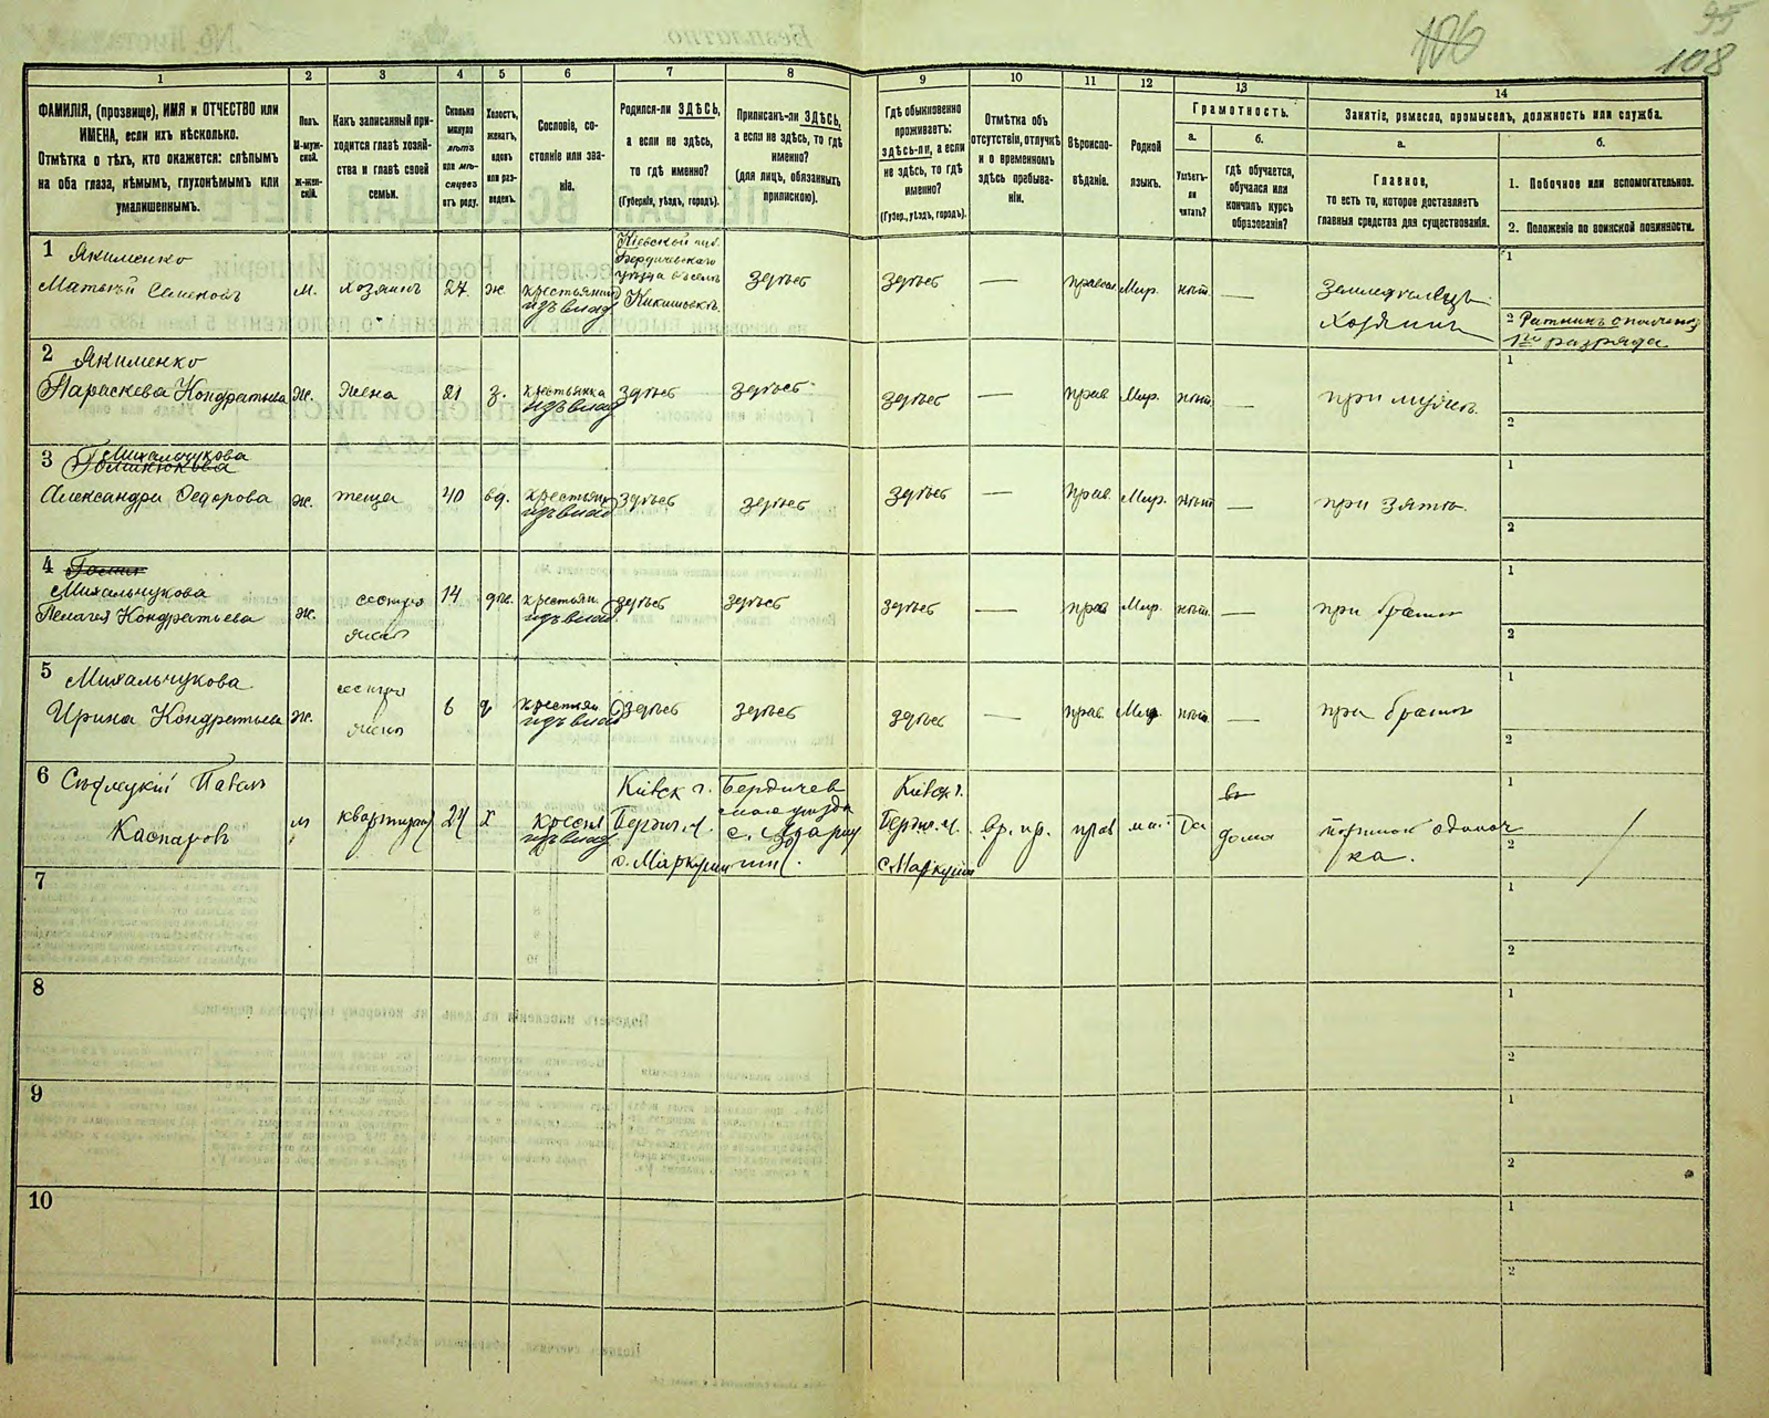 106
95
108
1
2
3
4
5
6
7
8
9
10
11
12
13
14
ФАМИЛІЯ, (прозвище), ИМЯ и ОТЧЕСТВО или
ИМЕНА, если ихъ нѣсколько.
Отмѣтка о тѣхъ, кто окажется: слѣпымъ
на оба глаза, нѣмымъ, глухонѣмымъ или
умалишеннымъ.
Полъ.
М-муж-
ской.
Ж-жен-
скій.
Какъ записанный при-
ходится главѣ хозяй-
ства и главѣ своей
семьи.
Сколько
минуло
лѣтъ
или мѣ-
сяцевъ
отъ роду.
Холостъ,
женатъ,
вдовъ
или раз-
веденъ.
Сословіе, со-
стояніе или зва-
ніе.
Родился-ли ЗДѢСЬ,
а если не здѣсь,
то гдѣ именно?
(Губернія, уѣздъ, городъ).
Приписанъ-ли ЗДѢСЬ,
а если не здѣсь, то гдѣ
именно?
(для лицъ, обязанныхъ
припискою).
Гдѣ обыкновенно
проживаетъ:
здѣсь-ли, а если
не здѣсь, то гдѣ
именно?
(Губер., уѣздъ, городъ).
Отмѣтка объ
отсутствіи, отлучкѣ
и о временномъ
здѣсь пребыва-
ніи.
Вѣроиспо-
вѣданіе.
Родной
языкъ.
Грамотность.
а.
Умѣетъ-
ли
читать?
б.
гдѣ обучается,
обучался или
кончилъ курсъ
образованія?
Занятіе, ремесло, промыселъ, должность или служба.
а.
Главное,
то есть то, которое доставляетъ
главныя средства для существованія.
б.
1. Побочное или вспомогательное.
2. Положеніе по воинской повинности.
1 Якименко
Матвѣй Семеновъ
м.
хозяинъ
27.
ж
крестьянинъ
изъ влад
Кіевской губ.
Бердичевскаго
уѣзда въ селѣ
здѣсь
здѣсь
—
правос
Мар.
нѣт.
—
Земледѣлецъ
Хозяинъ
1
2 Ратникъ ополчен
1го разряда
2 Якименко
Параскева Кондратьева
ж.
жена
21
з.
крестьянка
изъ влад
здѣсь
здѣсь
здѣсь
—
прав
Мар.
нѣт
—
при мужѣ
1
2
3 Михальчукова
Александра Федорова
ж.
теща
40
вд.
крестьян
изъ влад
здѣсь
здѣсь
здѣсь
—
прав.
Мар.
нѣт
—
при зятѣ.
1
2
4
Михальчукова
Пелагея Кондратьева
ж.
сестра
жены
14
дѣв.
крестьян.
изъ влад
здѣсь
здѣсь
здѣсь
—
прав
Мар.
нѣт.
—
при братѣ
1
2
5 Михальчукова
Ирина Кондратьева
ж.
сестра
жены
6
д
крестьян
изъ влад
здѣсь
здѣсь
здѣсь
—
прав.
Мар
нѣт.
—
при братѣ
1
2
6 Сѣдлецкій Павелъ
Каспаровъ
м
квартирант
24
х
изъ влад
Кіевск г.
Бердич. у.
с. Маркуши
Бердичев
скаго уѣзда
Кіевск г.
Бердич. у.
с. Маркуши
вр. пр.
прав
ма.
Да
дома
1
2
7
1
2
8
1
2
9
1
2
10
1
2